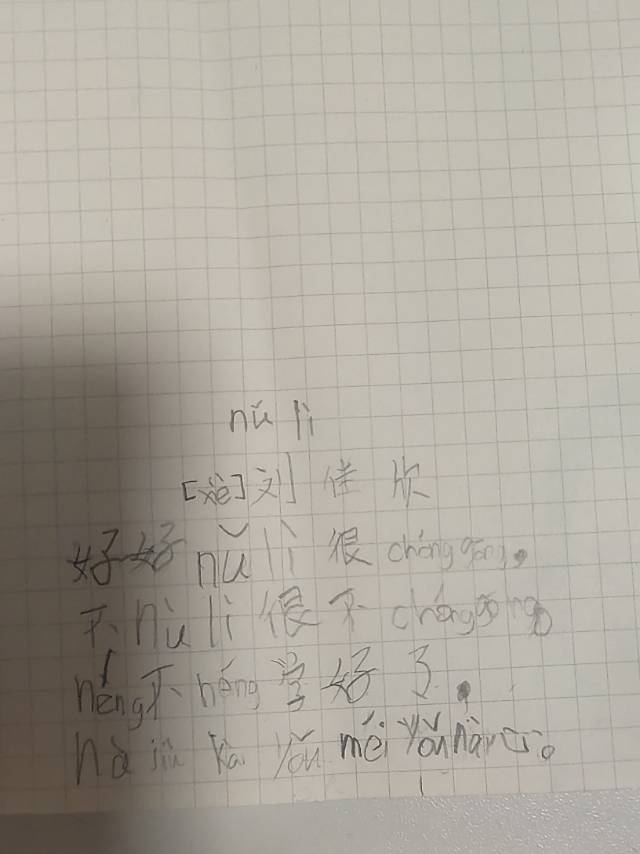 nǔ lì
[xiè]刘佳欣
好好nǔ lì很chénggōng。
不nǔ lì很不chénggōng
néng不néng学好了，
nà jiù kàn yǒu méi yǒu nài